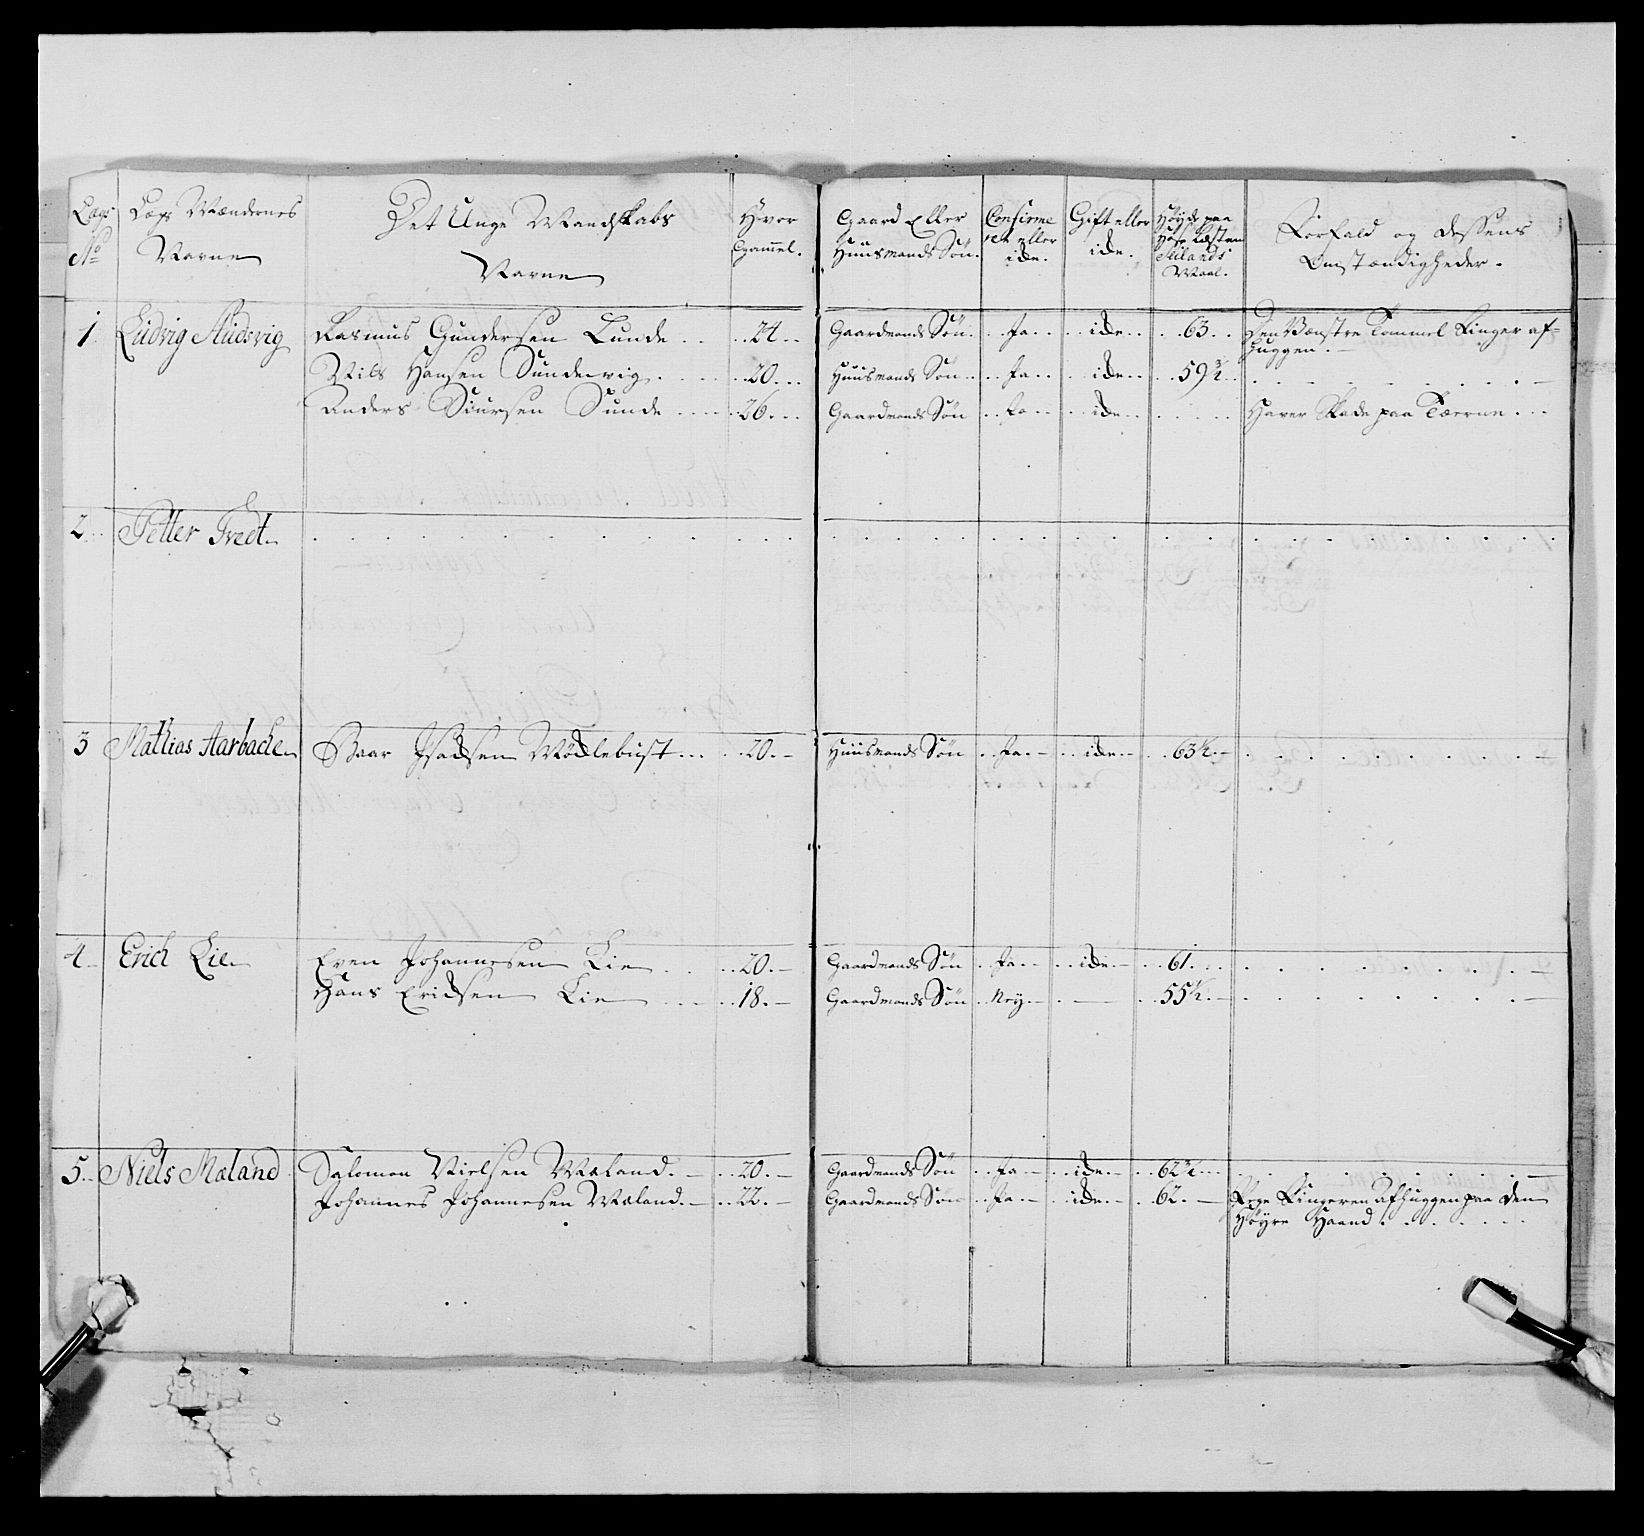 Lægs No
Lægs Mændernes Navne
Det Unge Mandskabs Navne
Hvor Gammel.
Gaard Eller Huusmands Søn.
Confirmeret eller ide.
Gift eller ide.
Høyde paa Hose Læsten Sielands Maal.
Forfald og dessens Omstændigheder.
1 Ludvig Rasmus Gundersen Lunde .. 24 .. Gaardmands Søn .. Ja .. ide .. 63 .. Den Venstre Tommel Finger af-
huggen.
Niels Hansen Sundevig .. 20 .. Huusmands Søn .. Ja .. ide .. 59 ½ ..
Anders Siursen Sunde .. 26 .. Gaardmands Søn .. Ja .. ide .. Haver Skade paa Tæerne ..
2 Petter Tvedt
3 Mathias Aarbache Baar Isacsen Mødlebust .. 20 .. Huusmands Søn .. Ja .. ide .. 63 ½
4 Erich Lie Even Johannesen Lie .. 20 .. Gaardmands Søn .. Ja .. ide .. 61 ..
Hans Ericksen Lie .. 18 .. Gaardmands Søn .. Ney .. 55 ½
5 Niels Mæland Salomon Nielsen Mæland .. 20 .. Gaardmands Søn .. Ja .. ide .. 62 ½
Johannes Johannesen Mæland .. 22 .. Gaardmands Søn .. Ja .. ide .. 62 .. Pege Fingeren afhuggen paa den
Høyre Haand ..